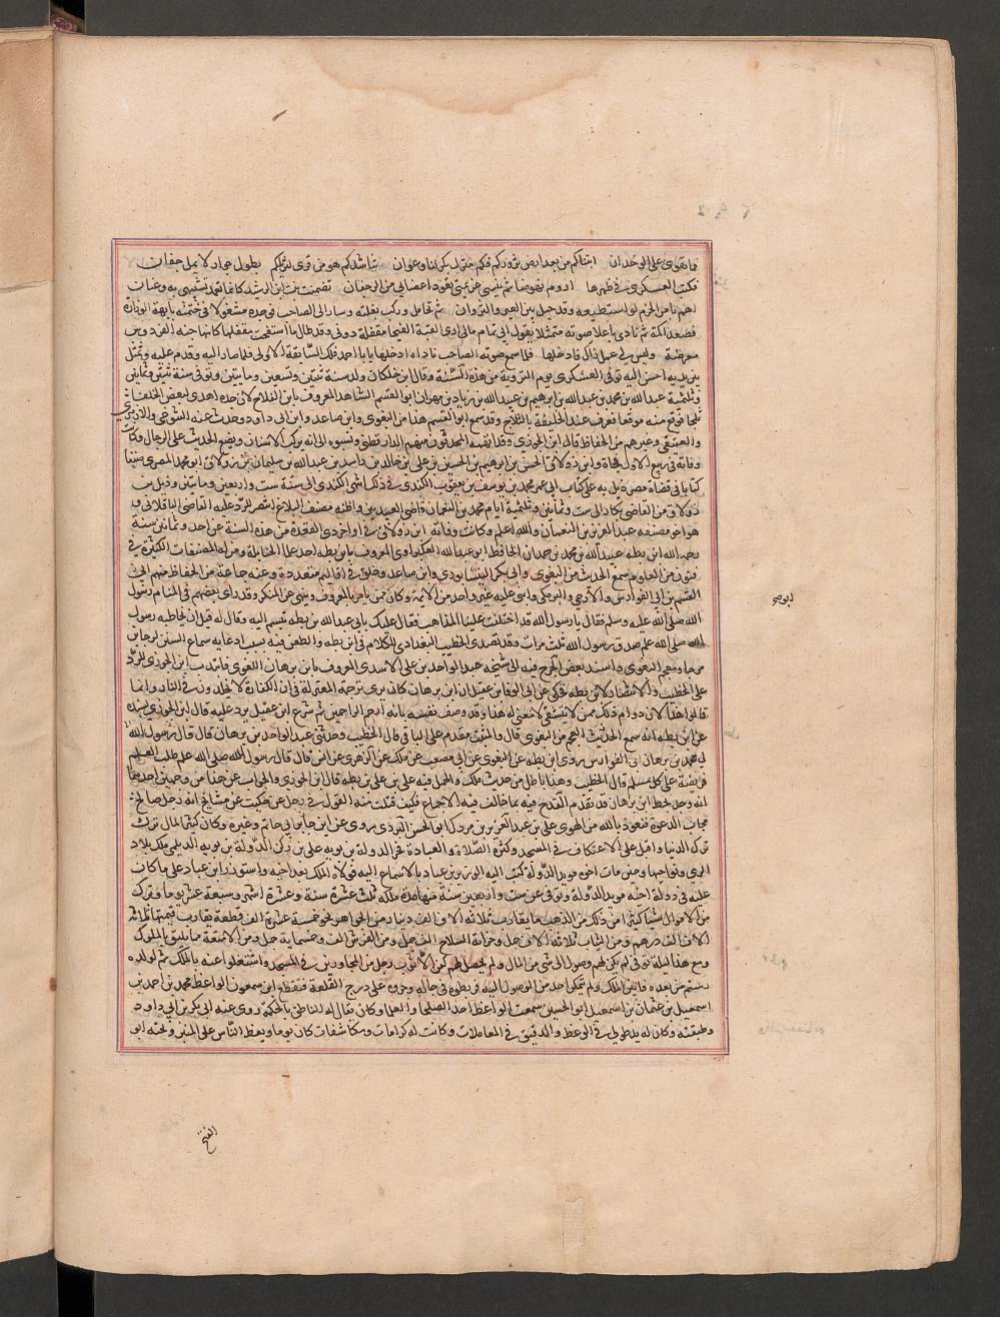 اتيناكم من بعد ارض نزوركم فكم منزل بكر لنا وعوان نناشدكم هل من قرى لنزيلكم بطول جوار لا يمل جفان
فكتب العسكري في ظهرها اروم نهوضا ثم يثنى عزيمتى تعود اعضائي من الرجفان فضمنت بيت ابن الرشيد كانما تعمد تشبيهى به وعنان
اهم بامر الحزم لو استطيعه وقد حيل بين العير والنزوان ثم تحامل وركب بغلته وسار الى الصاحب فوجده مشغولا في خيمته بابهة الوزارة
فصعد اكمة ثم نادى باعلا صوته متمثلا بقول ابي تمام مالي ارى القبة الفيحا مقفلة دوني وقد طال ما استفتحت مقفلها كانها جنة الفردوس
معرضة وليس لي عمل زاك فادخلها فلما سمع صوته الصاحب ناداه ادخلها يا با احمد فلك السابقة الاولى فلما صار اليه وقدم عليه وتمثل
بين يديه احسن اليه توفى العسكري يوم التروية من هذه السنة وقال ابن خلكان ولد سنة ثلث وتسعين ومايتين وتوفى سنة ثنتين وثمانين
وثلثمية عبد الله بن محمد بن عبد الله بن ابرهيم بن عبيد الله بن زياد بن مهران ابو القسم الشاهد المعروف بابن الثلاج لان جده اهدى لبعض الخلفاء
ثلجا فوقع منه موقعا فعرف عند الخليفة بالثلاج وقد سمع ابو القسم هذا من البغوي وابن صاعد وابن ابي داود وحدث عنه التنوخي والازهري
والعتيقي وغيرهم من الحفاظ قال ابن الجوزي وقد اتهمه المحدثون منهم الدارقطني ونسبوه الى انه يركب الاسناد ويضع الحديث على الرجال وكانت
وفاته في ربيع الاول فجاة وابن زولاق الحسن بن ابرهيم بن الحسين بن علي بن خالد بن راشد بن عبد الله بن سليمان بن زولاق ابو محمد المصري صنف
كتابا في قضاة مصر ذيل به على كتاب ابي عمر محمد بن يوسف بن يعقوب الكندي في ذلك انتهى الكندي الى سنة ست واربعين ومايتين وذيل ابن
زولاق من القاضي بكار الى ست وثمانين وثلثمية ايام محمد بن النعمان قاضي العبيديين واظنه مصنف البلاغ انتصر للرد عليه القاضي الباقلاني و
هو اخو مصنفه عبد العزيز بن النعمان والله اعلم وكانت وفاته ابن زولاق في اواخر ذي القعدة من هذه السنة عن احد وثمانين سنة
رحمه الله ابن بطه عبيد الله بن محمد بن حمدان الحافظ ابو عبد الله العكبراوي المعروف بابن بطه احد علما الحنابلة وله المصنفات الكثيرة في
فنون من العلوم سمع الحديث من البغوي وابي بكر النيسابوري وابن صاعد وخلق في اقاليم متعددة وعنه جماعة من الحفاظ منهم ابو الفتح
القسم بن ابي الفوارس والازجي والبرمكي واثنى عليه غير واحد من الائمة وكان ممن يامر بالمعروف وينهى عن المنكر وقد راى بعضهم في المنام رسول
الله صلى الله عليه وسلم فقال يا رسول الله قد اختلفت علينا المذاهب فقال عليك بابي عبد الله بن بطه
الله صلى الله عليه وسلم صدق رسول الله ثلث مرات وقد تصدى الخطيب البغدادي للكلام في ابن بطه والطعن فيه بسبب ادعايه سماع السنن لرجا بن
مرجا ومعجم البغوي واسند بعض الجرح فيه الى شيخه عبد الواحد بن علي الاسدي المعروف بابن برهان اللغوي فانتدب ابن الجوزي للرد
على الخطيب والانتصار لابن بطه فحكى عن ابي الوفا بن عقيل ان ابن برهان كان يرى مذهب المعتزلة في ان الكفار لا يخلدون في النار وانما
قالوا هذا لان دوام ذلك ممن لا يتشفى لا معنى له هنا وقد وصف نفسه بانه ارحم الراحمين ثم شرع ابن عقيل يرد عليه قال ابن الجوزي بسنده
عن ابن بطه انه سمع الحديث المعجم من البغوي قال والمثبت مقدم على النافي قال الخطيب وحدثني عبد الواحد بن برهان قال
لي محمد بن ابي الفوارس روى ابن بطه عن البغوي عن ابي مصعب عن ملك عن الزهري عن انس قال قال رسول الله صلى الله عليه وسلم طلب العلم
فريضة على كل مسلم قال الخطيب وهذا باطل من حديث ملك والحمل فيه على ابن بطه قال ابن الجوزي والجواب عن هذا من وجهين احدهما
انه وجد بخط ابن برهان
مجاب الدعوة فنعوذ بالله من الهوى علي بن عبد العزيز بن مردك ابو الحسن البرذعي روى عن ابن ابي حاتم وغيره وكان كثير المال ترك
ترك الدنيا واقبل على الاعتكاف في المسجد وكثرة الصلاة والعبادة فخر الدولة بن بويه علي بن ركن الدولة بن بويه الديلمي ملك بلاد
الري ونواحيها وحين مات اخوه مويد الدولة كتب اليه الوزير بن عباد بالاسراع اليه فولاه الملك بعد اخيه واستوزر ابن عباد على ما كان
عليه في دولة اخيه مويد الدولة وتوفى عن ست واربعين سنة منها مدة ملكه ثلث عشرة سنة وعشرة اشهر وسبعة عشر يوما وترك
من الاموال شيا كثيرا من ذلك من الذهب ما يقارب ثلاثة الاف الف دينار ومن الجواهر نحو خمسة عشرة الف قطعة يقارب قيمتها ثلاثة
الاف الف درهم ومن الثياب ثلاثة الاف حمل وخزانة السلاح الف حمل ومن الفرش الف وخمسماية حمل ومن الامتعة مما يليق بالملوك
ومع هذا ليلة توفى لم يكن لهم وصول الى شي من المال ولم يحصل لهم كفن الا ثوب رجل من المجاورين في المسجد واشتغلوا عنه بالملك ثم لولده
رستم من بعده فانتن الملك ولم يتمكن احد من الوصول اليه فربطوه في حبال وجروه على درج القلعة فتقطع ابن سمعون الواعظ محمد بن احمد بن
اسمعيل بن عثمان بن اسمعيل ابو الحسين سمعون الواعظ احد الصلحا والعلما وكان يقال له الناطق بالحكمة روى عنه ابي بكر بن ابي داود
وطبقته وكان له يد طولى في الوعظ والدقيق في المعاملات وكانت له كرامات ومكاشفات كان يوما ويعظ الناس على المنبر وتحته ابو
الفتح